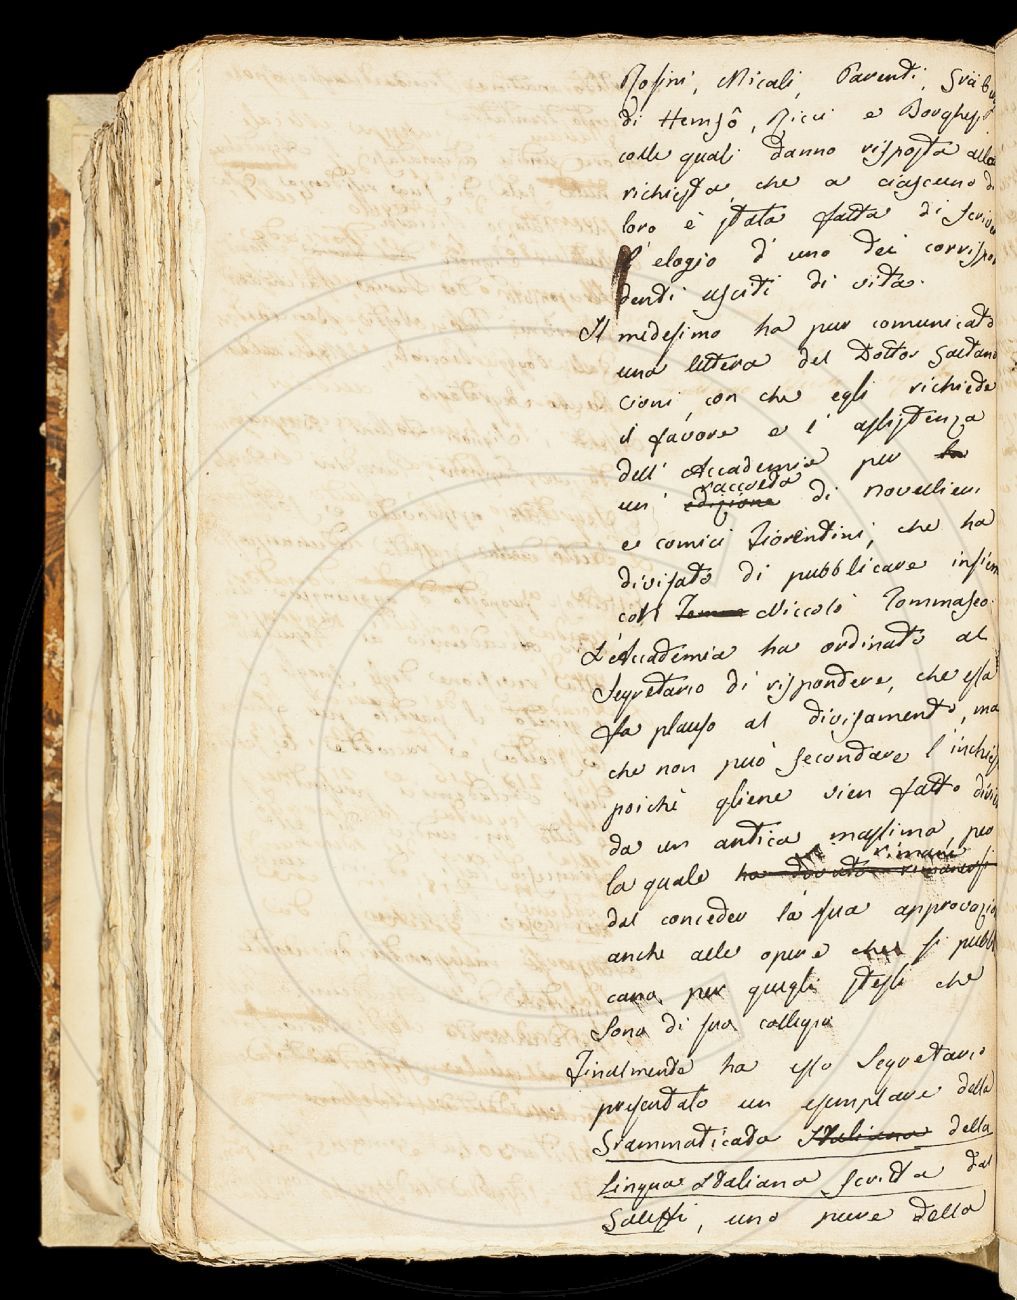 Rosini, Micali, Parenti, Gräberg
di Hemsô, Ricci e Borghesi
colle quali danno risposta alla
richiesta, che a ciascuno di
loro è stata fatta di scriver
l'elogio d'uno dei corrispon
denti usciti di vita.
Il medesimo ha pur comunicato
una lettera del Dottor Gaetano
Cioni, con che egli richiede
il favore e l'assistenza
dell'Accademia per la
un' edizione raccolta di Novellieri
e comici Fiorentini, che ha
divisato di pubblicare insiem
con Niccolò Tommaseo.
L'Accademia ha ordinato al
Segretario di rispondere, che essa
fa plauso al divisamento, ma
che non può secondare l'inchies
poichè gliene vien fatto divie
da un antica massima, per
la quale ha dovuto rimanersi rimane
dal conceder la sua approvazio
anche alle opere che si pubbli
cano per quegli stessi che
sono di suo collegio
Finalmente ha esso Segretario
presentato un esemplare della
Grammatica Italiana della
Lingua Italiana scritta dal
, uno pure della